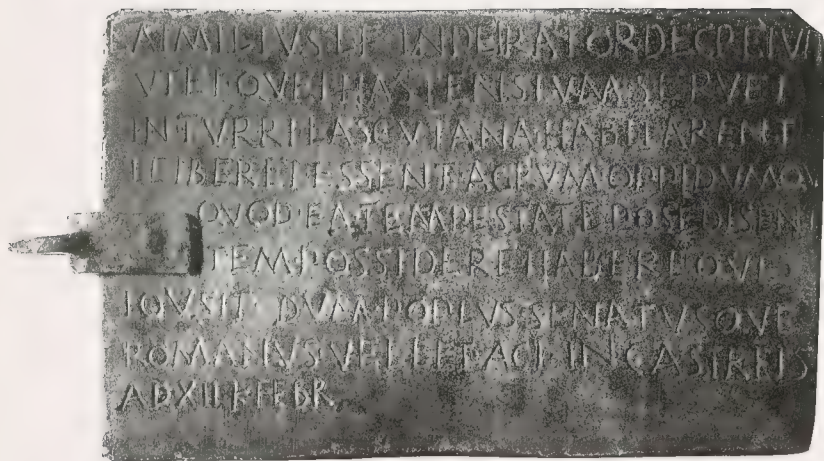 AIMILIVS·L·F·INPEIRATOR·DECREIVIT
VTEI·QVEI·HASTENSIVM·SERVEI
IN·TVRRI·LASCVTANA·HABITARENT
LEIBEREI·ESSENT·AGRVM·OPPIDVMQV
QVOD·EA·TEMPESTATE·POSEDISENT
ITEM·POSSIDERE·HABEREQVE
IOVSIT·DVM·POPLVS·SENATVSQVE
ROMANVS·VELLET·ACT·IN·CASTREIS
A·D·XII·K·FEBR